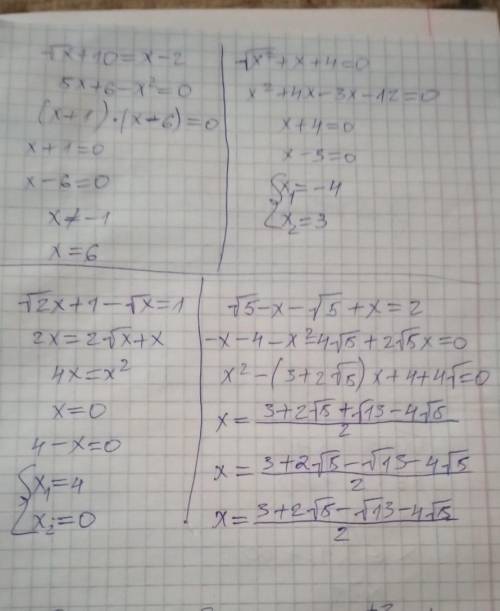 √x+10=x-2
5x+6-x²=0
(x+1)·(x-6)=0
x+1=0
x-6=0
x≠-1
x=6
√x²+x+4=0
x²+4x-3x-12=0
x+4=0
x-3=0
x₁=-4
x₂=3
√2x+1-√x=1
2x=2√x+x
4x=x²
x=0
4-x=0
x₁=4
x₂=0
√5-x-√5+x=2
-x-4-x²-4√5+2√5x=0
x²-(3+2√5)x+4+4√=0
x=3+2√5+√13-4√5
2
x=3+2√5-√13-4√5
2
x=3+2√5-√13-4√5
2